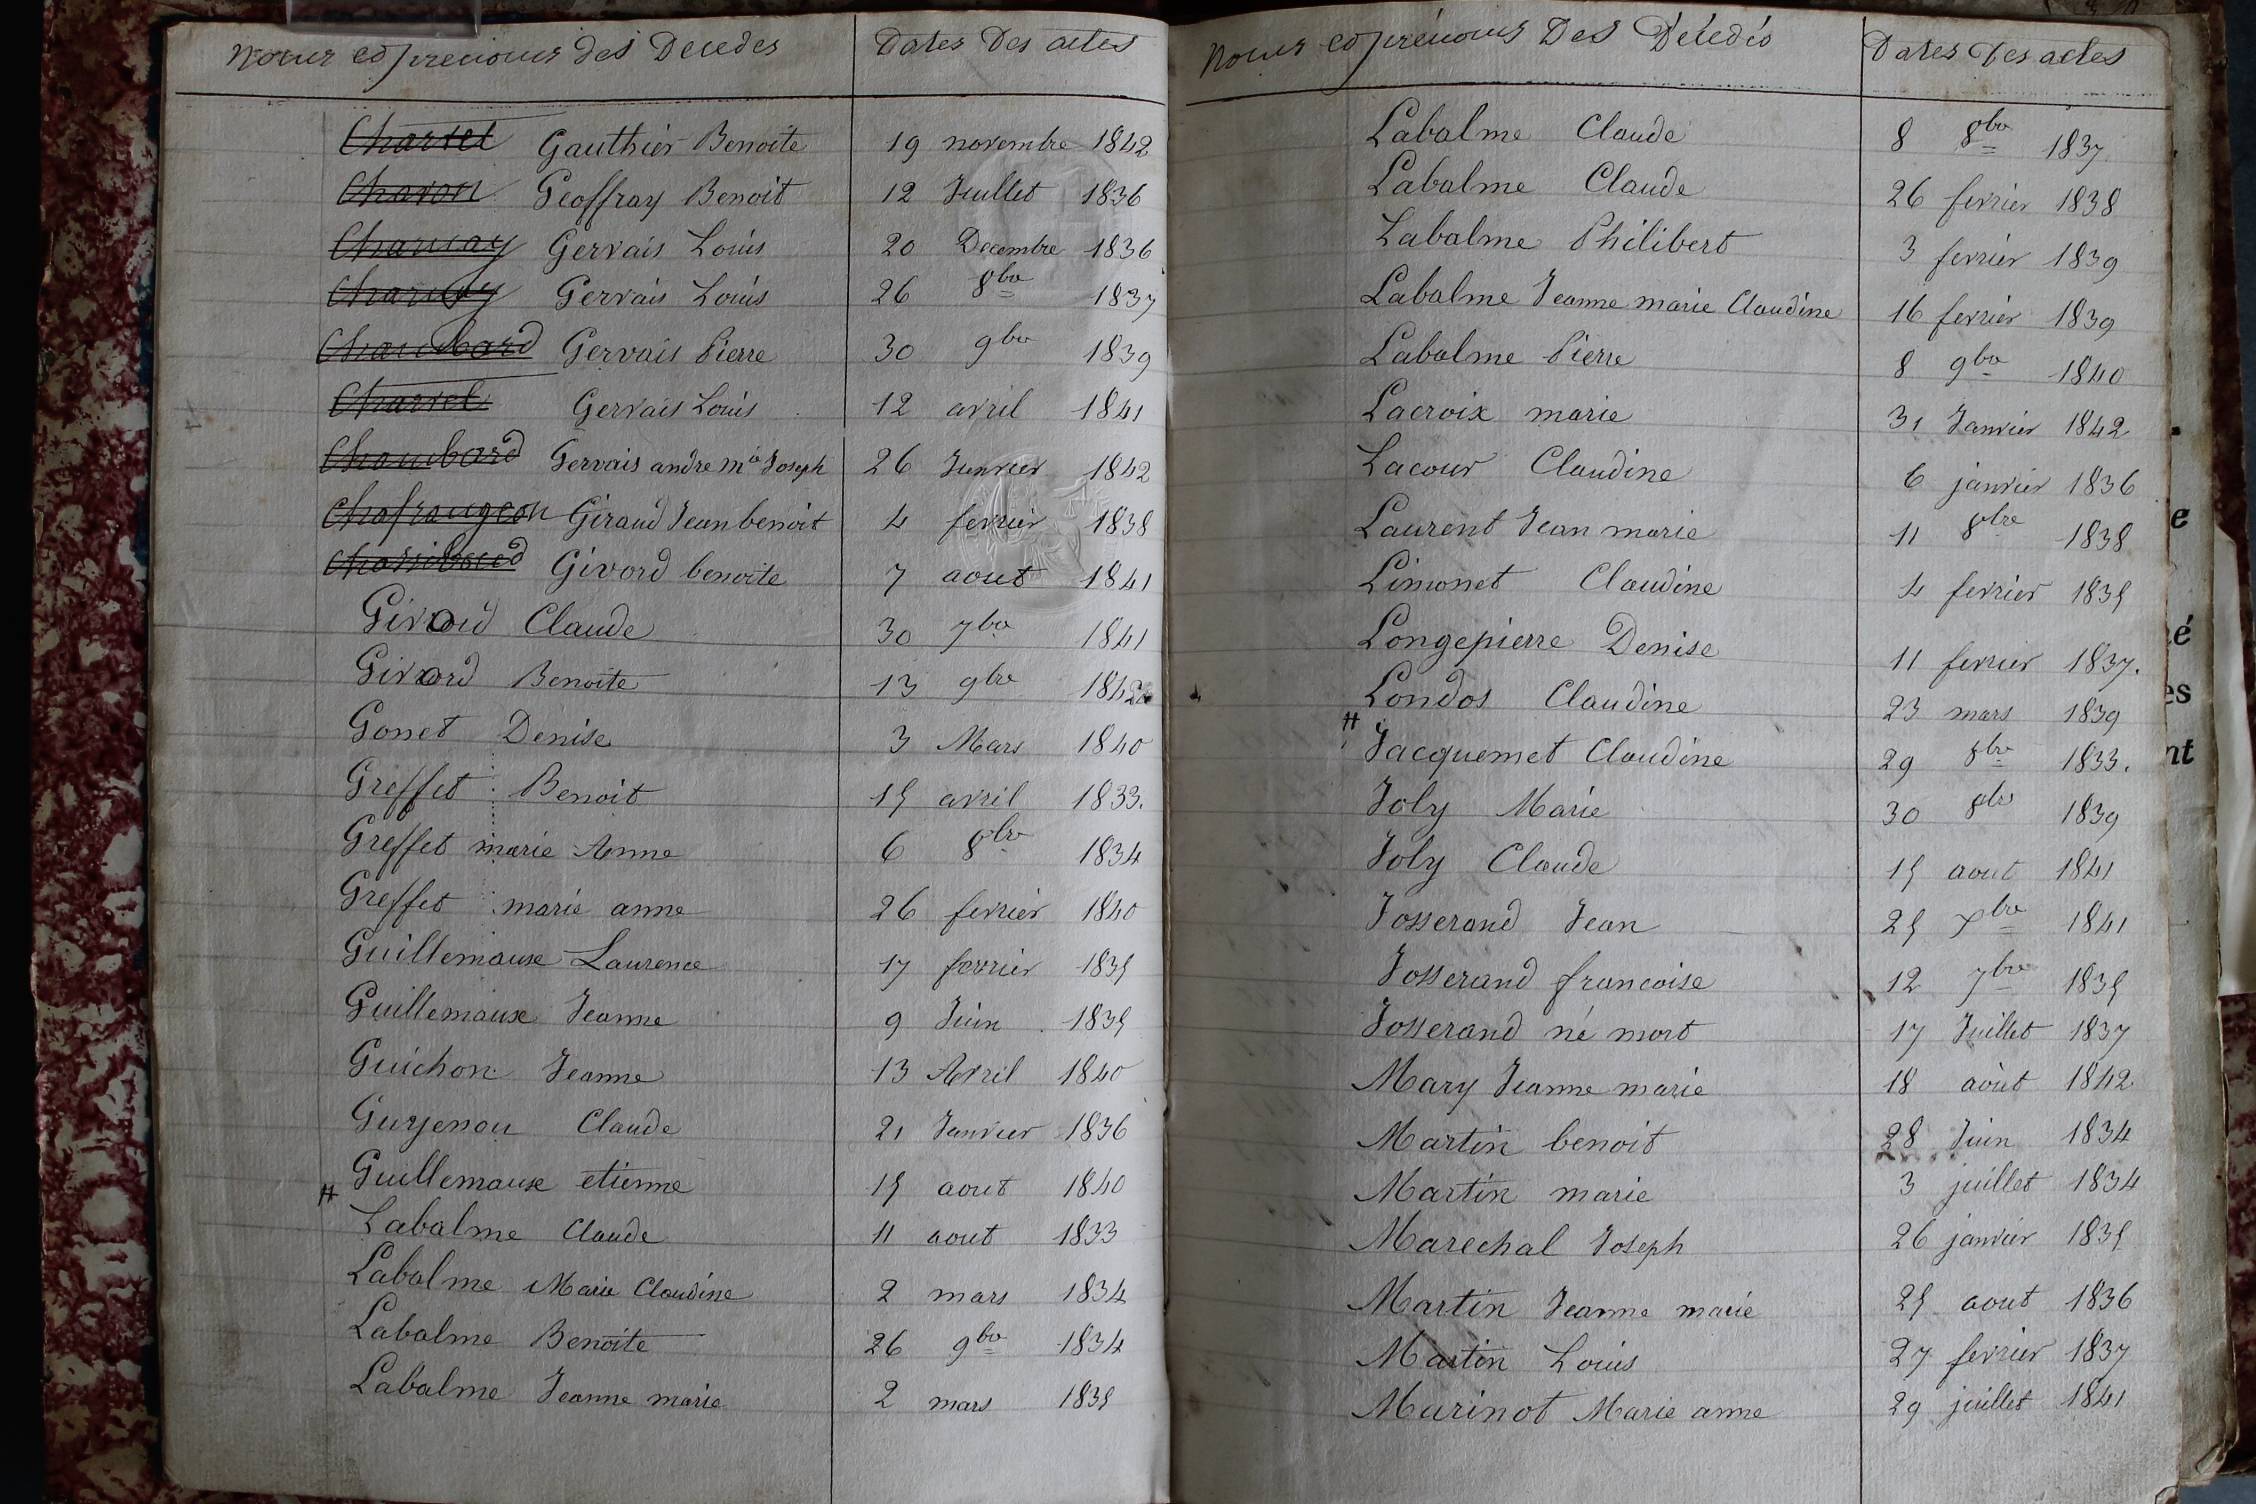 Noms et prenoms des Decedes Dates Des actes
Chartet Gauthier Benoite 19 novembre 1842
Charon Geoffray Benoit 12 Juillet 1836
Charnay Gervais Louis 20 Decembre 1836
Charnay Gervais Louis 26 8bre 1837
Chambard Gervais Pierre 30 9bre 1839
Gervais Louis 12 avril 1841
Chambard Gervais andre mie Joseph 26 Janvier 1842
Chafrangeon Giraud Jean benoit 4 fevrier 1838
Givord benoite 7 aout 1841
Givord Claude 30 7bre 1841
Givord Benoite 13 9bre 1842
Gonet Denise 3 Mars 1840
Greffet Benoit 15 avril 1833.
Greffet marie Anne 6 8bre 1834
Greffet marie anne 26 fevrier 1840
Guillemaux Laurence 17 fevrier 1835
Guillemaux Jeanne 9 Juin 1835
Guichon Jeanne 13 Avril 1840
Guyenou Claude 21 Janvier 1836
Guillemaux etienne 15 aout 1840
# Labalme Claude 11 aout 1833
Labalme Marie Claudine 2 mars 1834
Labalme Benoite 26 9bre 1834
Labalme Jeanne marie 2 mars 1835
Noms et prénoms Des Décédés Dates Des actes
Labalme Claude 8 8bre 1837
Labalme Claude 26 fevrier 1838
Labalme Philibert 3 fevrier 1839
Labalme Jeanne marie Claudine 16 fevrier 1839
Labalme Pierre 8 9bre 1840
Lacroix marie 31 Janvier 1842
Lacour Claudine 6 janvier 1836
Laurent Jean marie 11 8bre 1838
Limonet Claudine 4 fevrier 1835
Longepierre Denise 11 fevrier 1837.
Londos Claudine 23 mars 1839
# Jacquemet Claudine 29 8bre 1833.
Joly Marie 30 8bre 1839
Joly Claude 15 aout 1841
Josserand Jean 25 Xbre 1841
Josserand francoise 12 7bre 1835
Josserand né mort 17 Juillet 1837
Mary Jeanne marie 18 aout 1842
Martin benoit 28 Juin 1834
Martin marie 3 juillet 1834
Marechal Joseph 26 janvier 1835
Martin Jeanne marie 25 aout 1836
Martin Louis 27 fevrier 1837
Marinot Marie anne 29 juillet 1841